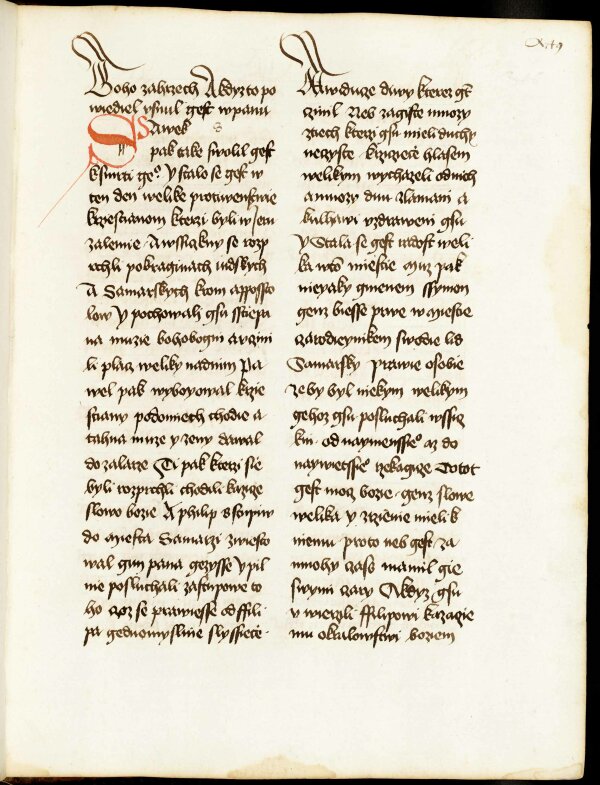 toho zahrzech A kdyz to po
wiediel vsnul gest wpanu
Sawek
pak take swolil gest
ksmrti geo. Y stalo se gest w
ten den welike protiwenstwie
krzestianom kterzi byli w Jeru
zalemie A wssickny se rozp
rchli pokraginach iudskych
A Samarskych krom appossto
low Y pochowali gsu sstiepa
na muzie bohobogni a vcini
li placz weliky nadnim Pa
wel pak wyboyowal krzie
stiany podomiech chodie a
tahna muze y zeny dawal
do zalarze Ti pak kterzi sie
byli rozprchli chodali kazize
slowo bozie A philip
do miesta Samarzi zwiesto
wal gim pana gezysse Y pil
nie posluchali zastupowe to
ho coz se prawiesse od ffili
pa gednomyslnie slyssiece
A widuze diwy kterez gest
czinil Neb zagiste mnozy
ztiech kterzi gsu mieli duchy
neczyste krzicziece hlasem
welikym wychazeli odnich
a mnozy dnu zlamani a
kulhawi vzdraweni gsu
Y Stala se gest radost weli
ka wto miestie Muz pak
nieyaky gmenem ssymon
genz biesse prwe w miestie
czarodieynikem swodie lid
Samarsky prawie o sobie
ze by byl niekym welikym
gehoz gsu posluchali wssic
kni od naymenssieo az do
naywietssieo rzekagize Totot
gest moc bozie genz slowe
welika y zrzienie mieli k
niemu proto neb gest za
mnohy czas mamil gie
swymi czary A kdyz gsu
vwierzili ffilipowi kazagie
mu o kralowstwi boziem